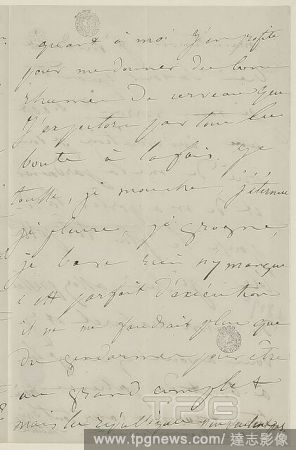 quant à moi j'en profite
pour me donner du bon
rhume de cerveau que
j'exploite par tous les
bouts à la fois. Je
tousse, je mouche, j'éternue
je pleure, je grogne,
je bave rien n'y manque
c'est parfait d'exécution
il ne me faudrait plus que
du gendarme pour être
au grand complet
mais la république
TPG
www.tpgnews.com / 達志影像